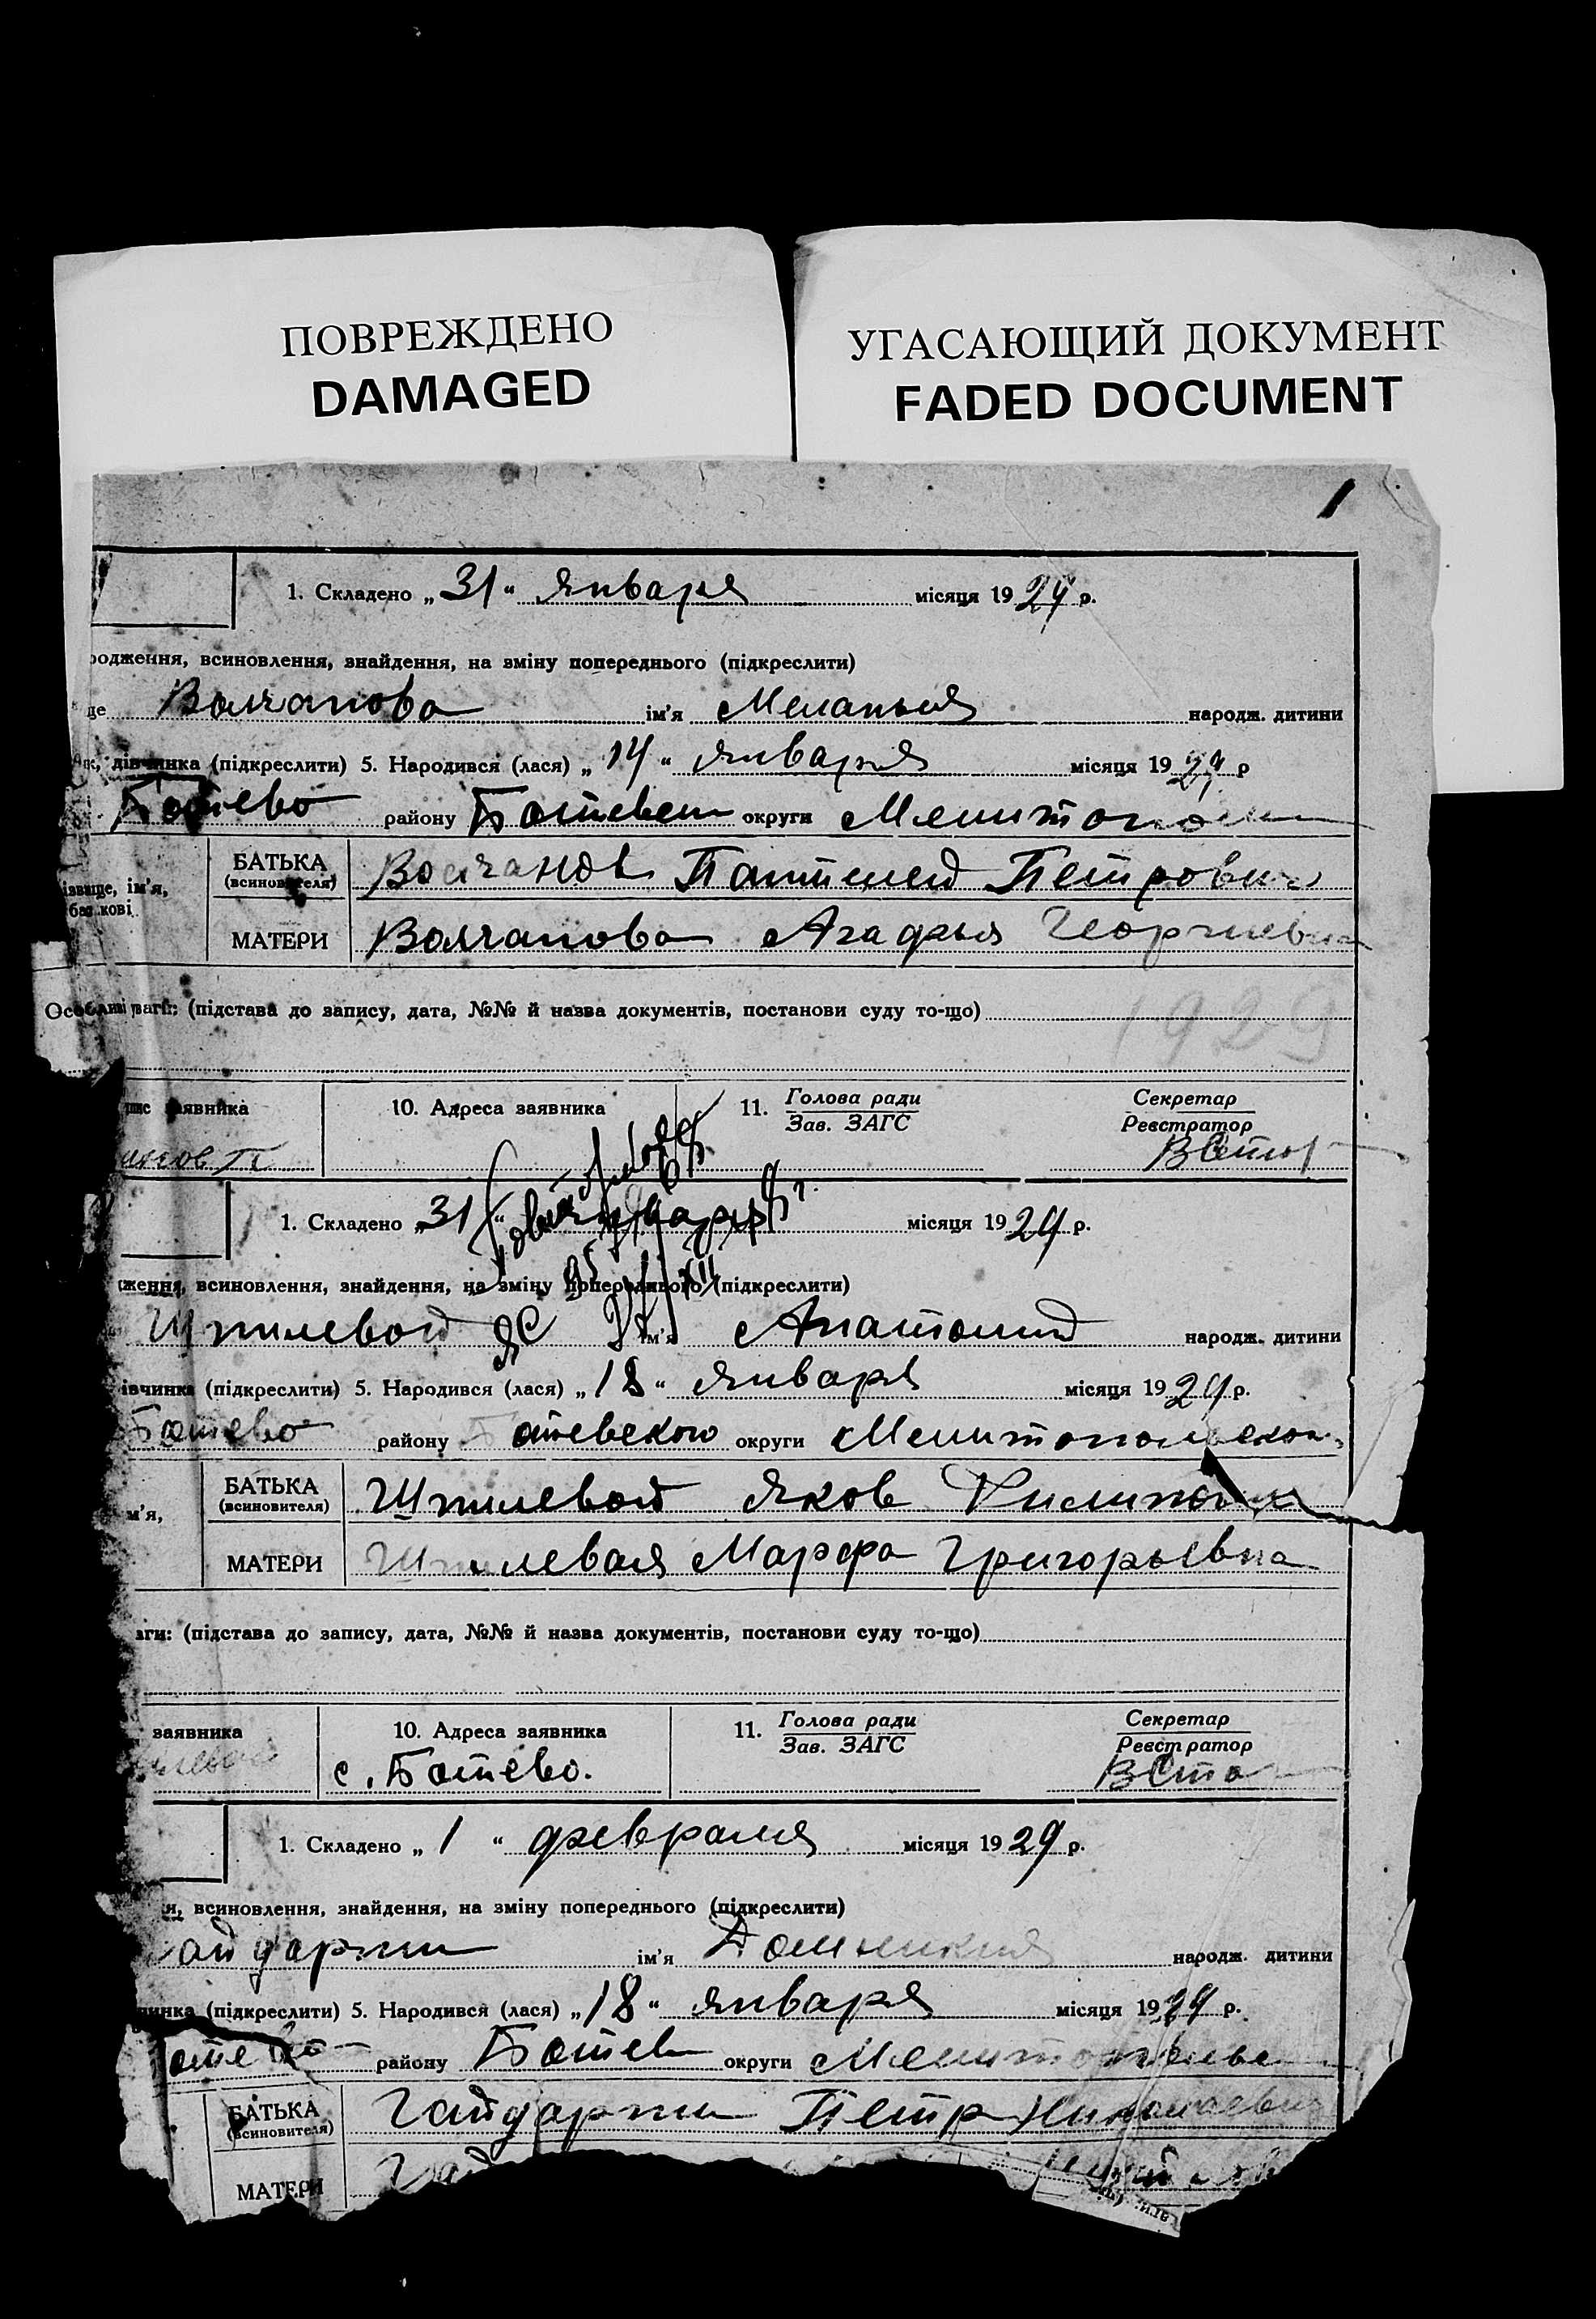 ПОВРЕЖДЕНО
DAMAGED
УГАСАЮЩИЙ ДОКУМЕНТ
FADED DOCUMENT
1
1. Складено „31“ января місяця 1929 р.
родження, всиновлення, знайдення, на зміну попереднього (підкреслити)
ще Волчанова ім'я Меланья народж. дитини
дівчинка (підкреслити) 5. Народився (лася) „14“ января місяця 1929 р
Ботево району Ботевск округи Мелитополь
БАТЬКА (всиновителя) Волчанов Пантелей Петрович
ізвище, ім'я, батькові
МАТЕРИ Волчанова Агафья Георгиевна
Особливі уваги: (підстава до запису, дата, №№ й назва документів, постанови суду то-що)
1929
пис заявника 10. Адреса заявника 11. Голова ради Зав. ЗАГС Секретар Реєстратор
анов П
1. Складено „31“ января місяця 1929 р.
ження, всиновлення, знайдення, на зміну попереднього (підкреслити)
Шпилевой ім'я Анатолий народж. дитини
івчинка (підкреслити) 5. Народився (лася) „18“ января місяця 1929 р.
Ботево району Ботевского округи Мелитопольском
м'я, БАТЬКА (всиновителя) Шпилевой Яков Филипович
МАТЕРИ Шпилевая Марфа Григорьевна
аги: (підстава до запису, дата, №№ й назва документів, постанови суду то-що)
заявника 10. Адреса заявника 11. Голова ради Зав. ЗАГС Секретар Реєстратор
с. Ботево.
1. Складено „1“ февраля місяця 1929 р.
я, всиновлення, знайдення, на зміну попереднього (підкреслити)
айдаржи ім'я Домникия народж. дитини
чинка (підкреслити) 5. Народився (лася) „18“ января місяця 1929 р.
отево району Ботев округи
БАТЬКА (всиновителя) Гайдаржи Петр Николаевич
МАТЕРИ Гай